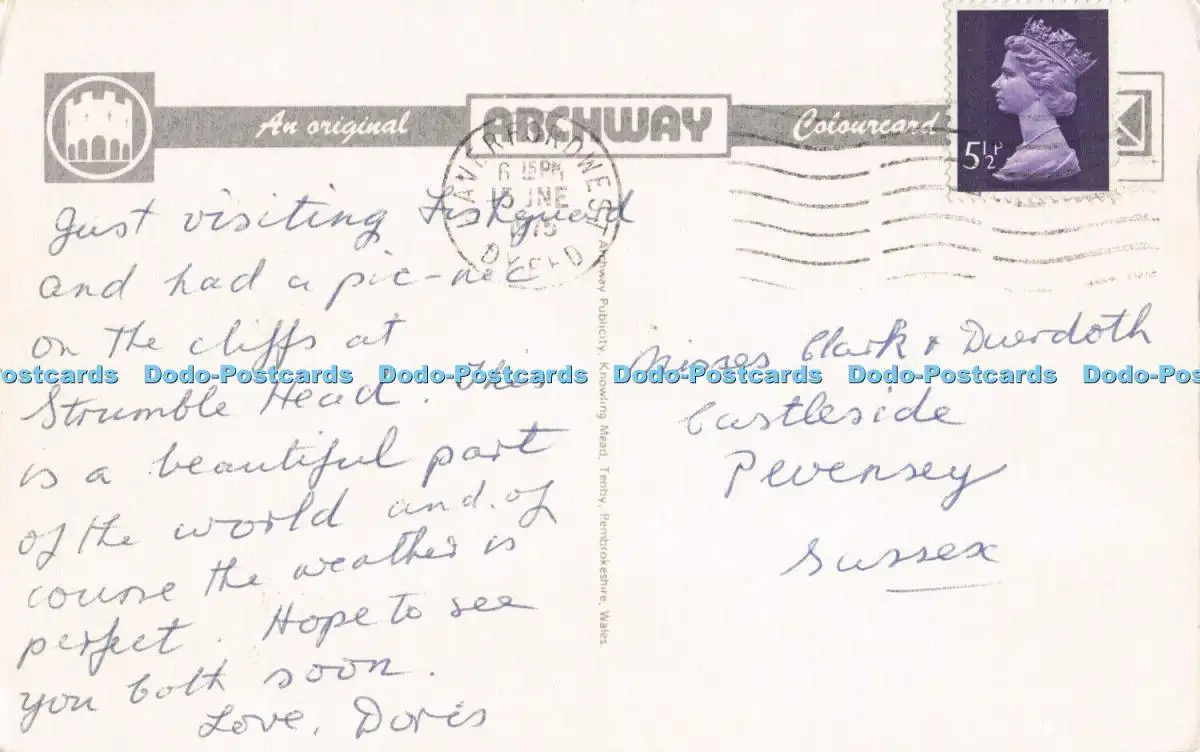 An original ARCHWAY Colourcard
5½P
HAVERFORDWEST
6 15PM
JNE
DYFED
Just visiting Fishguard
and had a pic-nic
on the cliffs at
Strumble Head. This
is a beautiful part
of the world and of
course the weather is
perfect. Hope to see
you both soon.
Love, Doris
Archway Publicity, Knowling Mead, Tenby, Pembrokeshire, Wales.
Misses Clark & Duerdoth
Castleside
Pevensey
Sussex
Dodo-Postcards Dodo-Postcards Dodo-Postcards Dodo-Postcards Dodo-Postcards